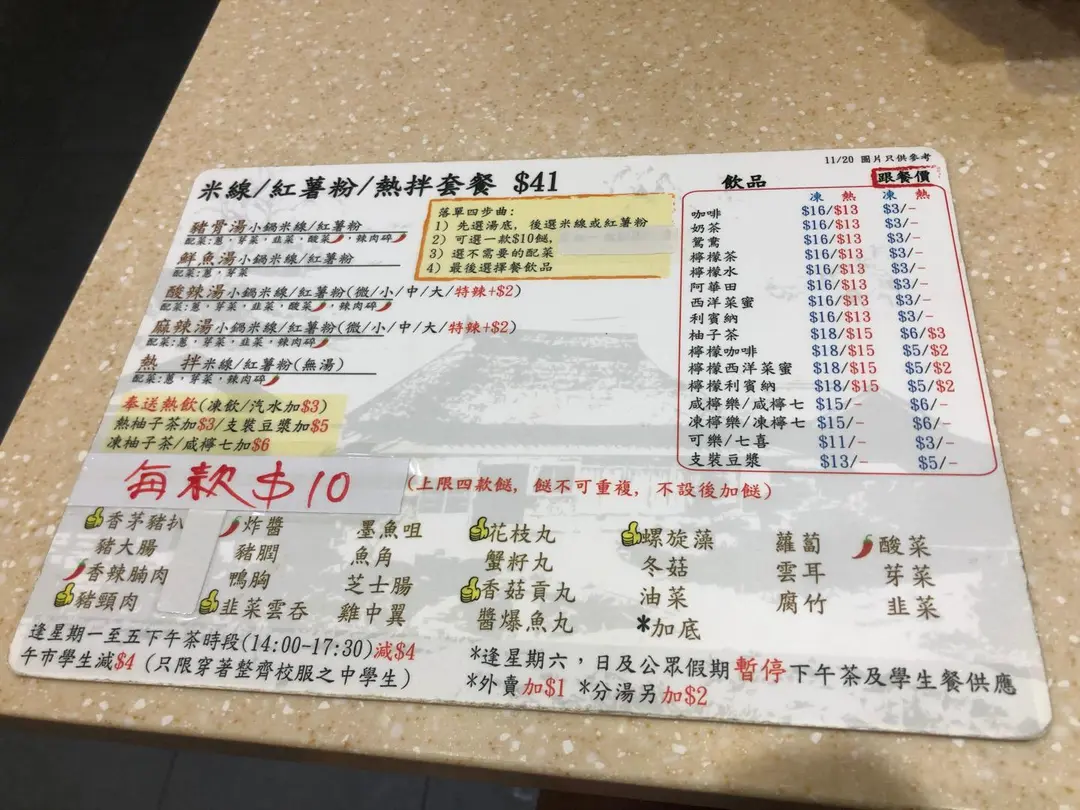 11/20 圖片只供參考
米線/紅薯粉/熱拌套餐 $41
豬骨湯小鍋米線/紅薯粉
配菜:蔥,芽菜,韭菜,酸菜,辣肉碎
鮮魚湯小鍋米線/紅薯粉
配菜:蔥,芽菜
酸辣湯小鍋米線/紅薯粉(微/小/中/大/特辣+$2)
配菜:蔥,芽菜,韭菜,酸菜,辣肉碎
麻辣湯小鍋米線/紅薯粉(微/小/中/大/特辣+$2)
配菜:蔥,芽菜,韭菜,辣肉碎
熱 拌米線/紅薯粉(無湯)
配菜:蔥,芽菜,辣肉碎
奉送熱飲(凍飲/汽水加$3)
熱柚子茶加$3/支裝豆漿加$5
凍柚子茶/咸檸七加$6
落單四步曲:
1) 先選湯底, 後選米線或紅薯粉
2) 可選一款$10餸,
3) 選不需要的配菜
4) 最後選擇餐飲品
飲品 跟餐價
凍 熱 凍 熱
咖啡 $16/$13 $3/-
奶茶 $16/$13 $3/-
鴛鴦 $16/$13 $3/-
檸檬茶 $16/$13 $3/-
檸檬水 $16/$13 $3/-
阿華田 $16/$13 $3/-
西洋菜蜜 $16/$13 $3/-
利賓納 $16/$13 $3/-
柚子茶 $18/$15 $6/$3
檸檬咖啡 $18/$15 $5/$2
檸檬西洋菜蜜 $18/$15 $5/$2
檸檬利賓納 $18/$15 $5/$2
咸檸樂/咸檸七 $15/- $6/-
凍檸樂/凍檸七 $15/- $6/-
可樂/七喜 $11/- $3/-
支裝豆漿 $13/- $5/-
每款$10 (上限四款餸, 餸不可重複, 不設後加餸)
香茅豬扒 炸醬 墨魚咀 花枝丸 螺旋藻 蘿蔔 酸菜
豬大腸 豬膶 魚角 蟹籽丸 冬菇 雲耳 芽菜
香辣腩肉 鴨胸 芝士腸 香菇貢丸 油菜 腐竹 韭菜
豬頸肉 韭菜雲吞 雞中翼 醬爆魚丸 *加底
逢星期一至五下午茶時段(14:00-17:30)減$4
午市學生減$4 (只限穿著整齊校服之中學生)
*逢星期六,日及公眾假期暫停下午茶及學生餐供應
*外賣加$1 *分湯另加$2